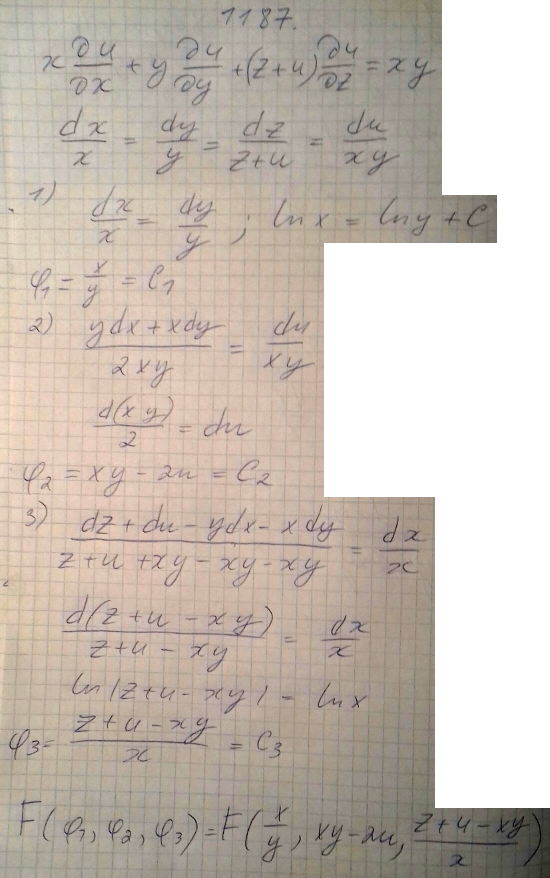 1187.
x ∂u/∂x + y ∂u/∂y + (z+u) ∂u/∂z = xy
dx/x = dy/y = dz/(z+u) = du/xy
1) dx/x = dy/y ; ln x = ln y + C
φ₁ = x/y = C₁
2) (ydx + xdy)/2xy = du/xy
d(xy)/2 = du
φ₂ = xy - 2u = C₂
3) (dz + du - ydx - xdy)/(z+u+xy-xy-xy) = dx/x
d(z+u-xy)/(z+u-xy) = dx/x
ln|z+u-xy| = ln x
φ₃ = (z+u-xy)/x = C₃
F(φ₁, φ₂, φ₃) = F(x/y, xy-2u, (z+u-xy)/x)